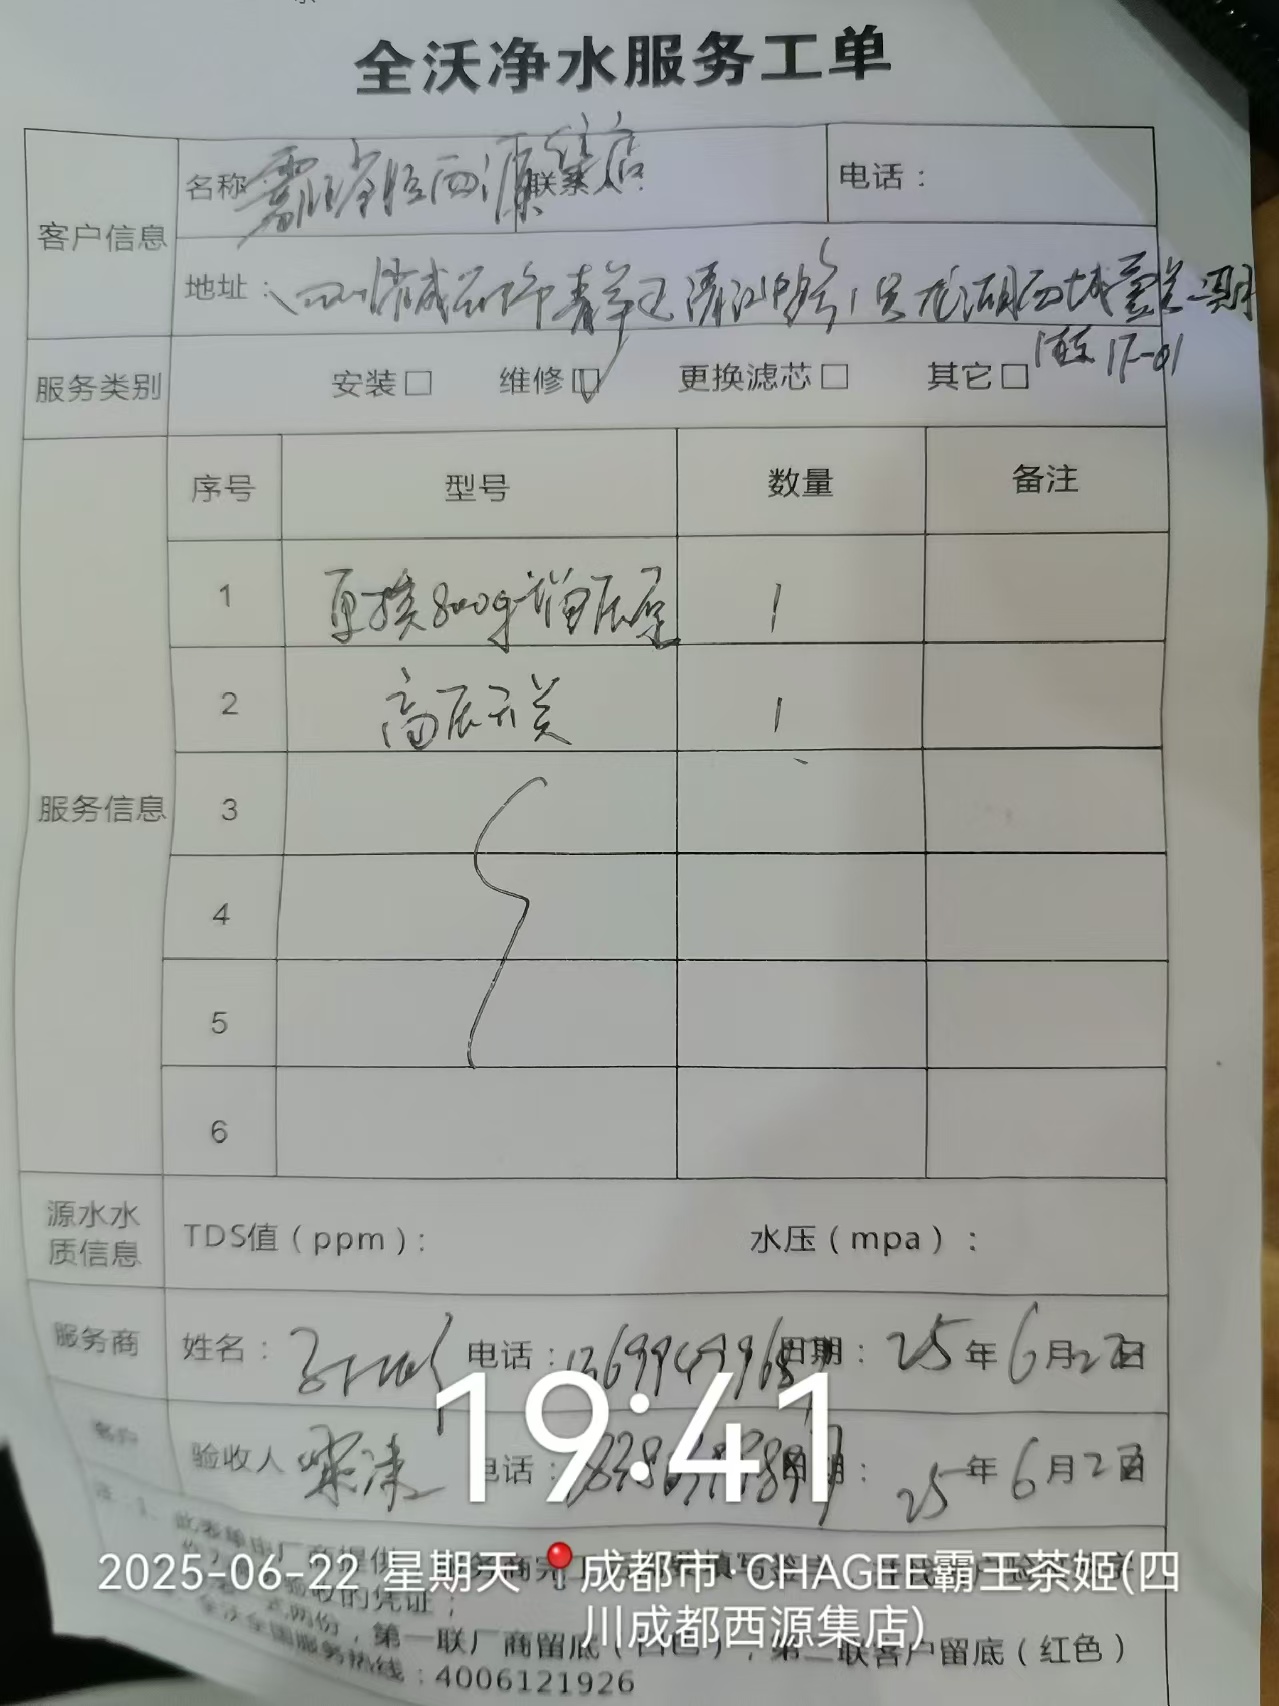 全沃净水服务工单
客户信息
名称 霸王茶姬西源集店 联系人：
电话：
地址：四川省成都市青羊区清江中路1号龙湖西城天街二期
1栋 1F-01
服务类别 安装□ 维修☑ 更换滤芯□ 其它□
服务信息
序号 型号 数量 备注
1 更换800g增压泵 1
2 高压开关 1
3
4
5
6
源水水质信息
TDS值（ppm）： 水压（mpa）：
服务商 姓名： 电话： 日期： 25年6月22日
客户 验收人 电话： 日期： 25年6月22日
19:41
2025-06-22 星期天 📍成都市·CHAGEE霸王茶姬(四
川成都西源集店)
注：1、此表单由厂商提供
验收的凭证；
式两份，第一联厂商留底（白色），第二联客户留底（红色）
全沃全国服务热线：4006121926